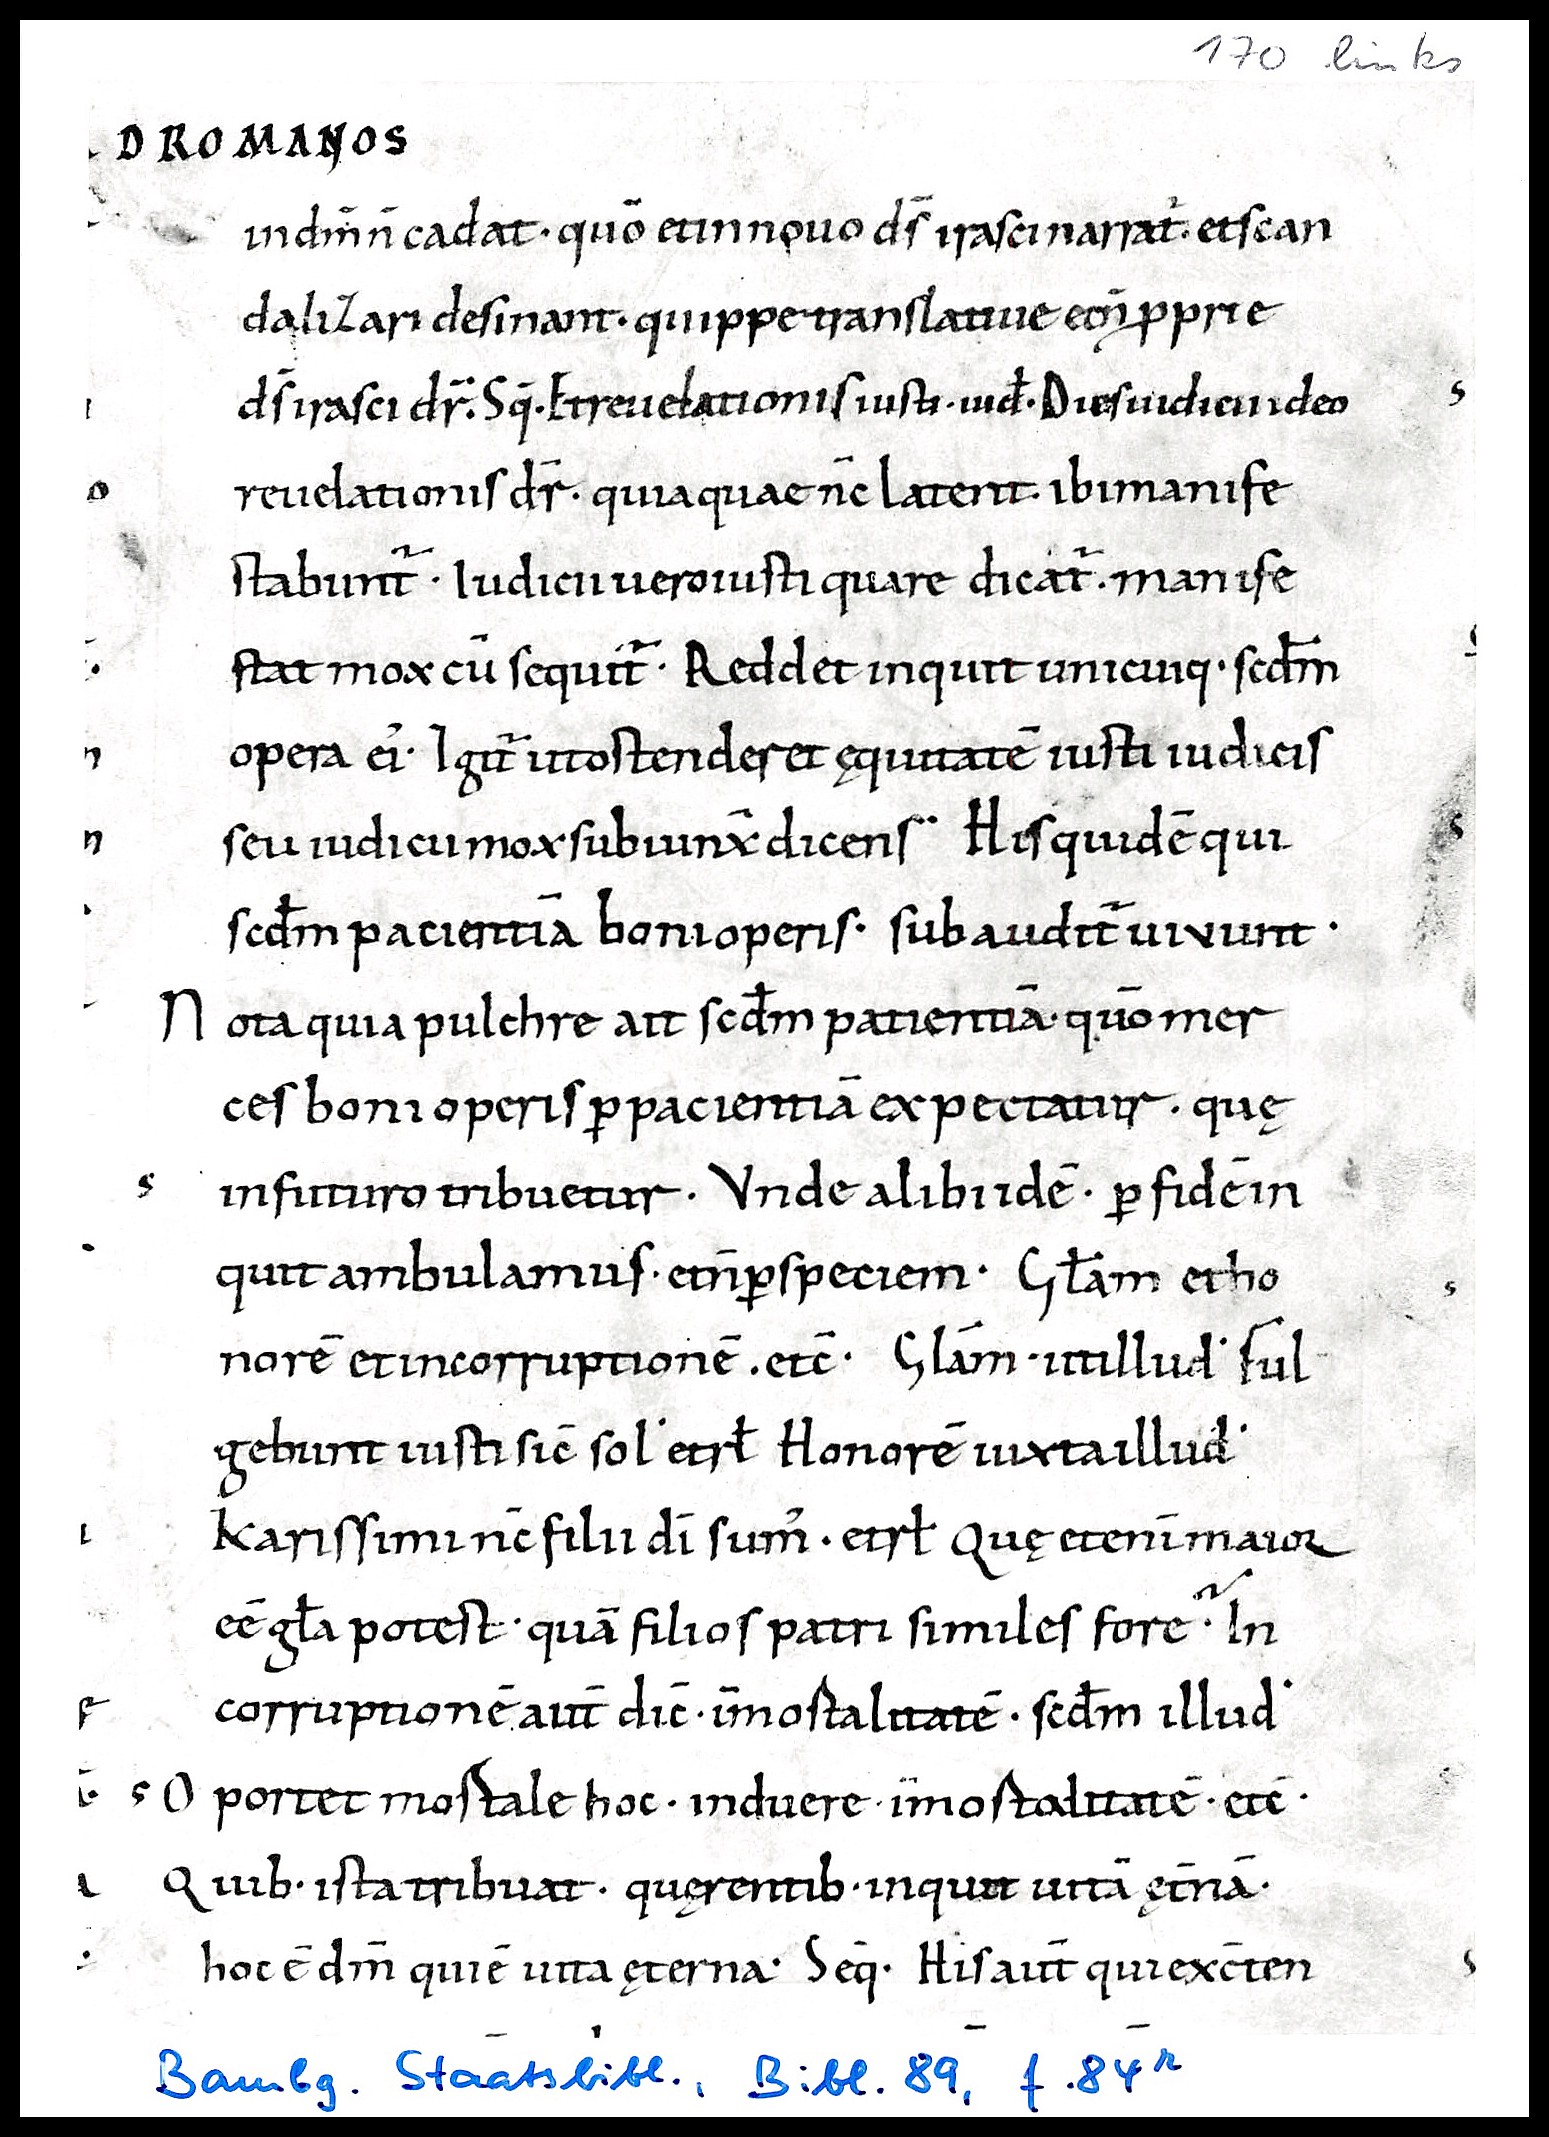 170 links
AD ROMANOS
in dm̄ n̄ cadat · quō et in nouo ds̄ irasci narrat᷑ · et scan
dalizari desinant · quippe translatiue et n̄ ꝓprie
ds̄ irasci dr̄ · Sq̄ · Et reuelationis iusti · iud̄ · Dies iudicii ideo
reuelationis dr̄ · quia quae nc̄ latent · ibi manife
stabunt᷑ · Iudicii uero iusti quare dicat᷑ · manife
stat mox cū sequit᷑ · Reddet inquit unicuiq · scd̄m
opera ei᾽ · Igit᷑ ut ostenderet ęquitatē iusti iudicis
seu iudicii mox subiunx̄ dicens · His quidē qui
scd̄m pacientiā boni operis · subaudit᷑ uiuunt ·
Nota quia pulchre ait scd̄m patientiā · quō mer
ces boni operis ꝑ pacientiā expectatur · quę
in futuro tribuetur · Vnde alibi idē · ꝑ fidē in
quit ambulamus · et n̄ ꝑ speciem · Gl̄am et ho
norē et incorruptionē · etc̄ · Glām · ut illud · Ful
gebunt iusti sic̄ sol · et rł Honorē iuxta illud ·
Karissimi nc̄ filii dī sum᾽ · et rł Quę etenī maior
eē gl̄a potest · quā filios patri similes fore · In
corruptionē aut̄ dic̄ · īmortalitatē · scd̄m illud ·
s Oportet mortale hoc · induere · īmortalitatē · etc̄ ·
Quib · ista tribuat · quęrentib · inquit uitā ęt̄nā ·
hoc ē dm̄ qui ē uita ęterna · Seq̄ · His aut̄ qui ex c̄ten
Bambg. Staatsbibl., Bibl. 89, f. 84r